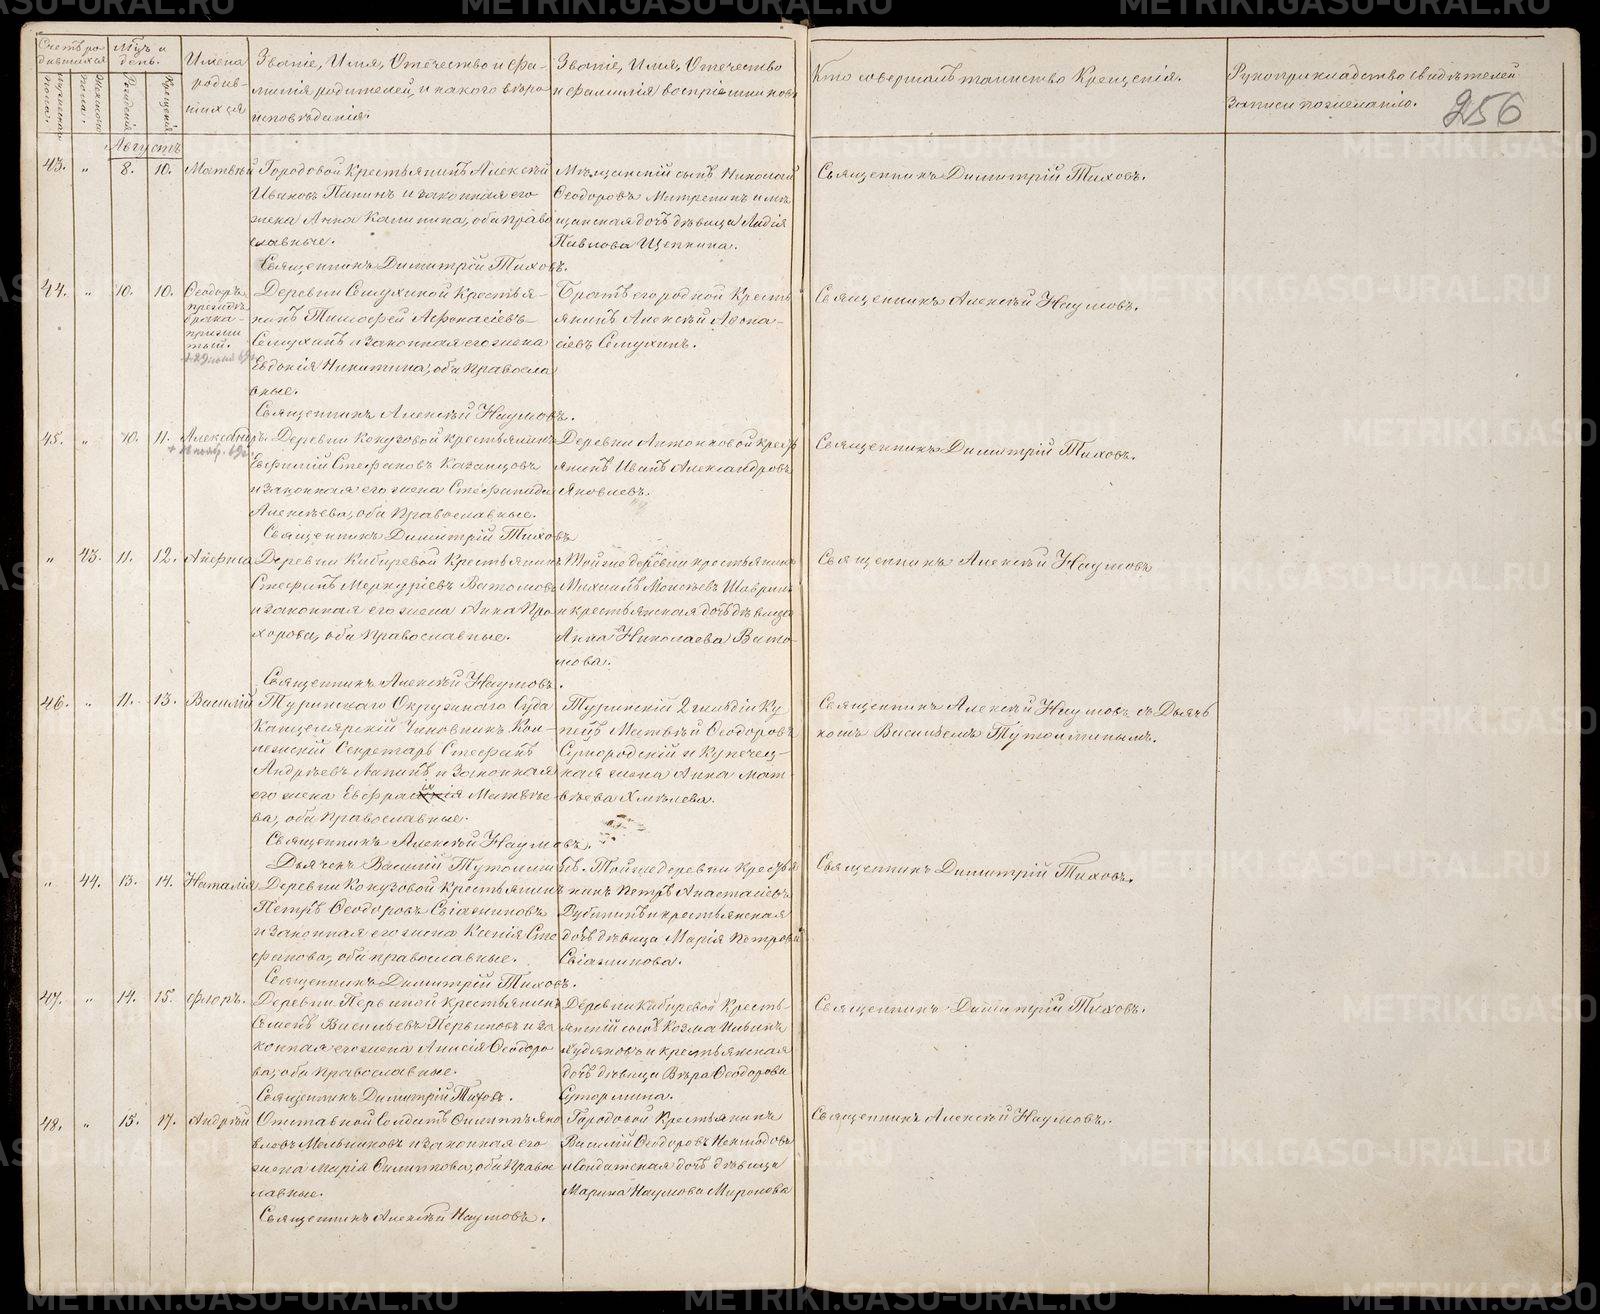 Счетъ ро-
дившихся
Мѣц. и
день.
Имена
родив-
шихся
Званіе, Имя, Отчество и фа-
милія родителей, и какого вѣро-
исповѣданія.
Званіе, Имя, Отчество
и фамилія воспріемниковъ
Кто совершалъ таинство Крещенія.
Рукоприкладство свидѣтелей
Записи по желанію.
256
Мужеска пола.
Женска пола.
Рожденія
Крещенія
Августъ
43. „ 8. 10. Матвѣй
Городовой Крестьянинъ Алексѣй
Ивановъ Папинъ и законная его
жена Анна Калинина, оба право
славные.
Священникъ Димитрій Тиховъ.
Мѣщанскій сынъ Николай
Ѳеодоровъ Митрепинъ и мѣ
щанская дочь дѣвица Лидія
Павлова Щепкина.
Священникъ Димитрій Тиховъ.
44. „ 10. 10. Ѳеодоръ
прежде
брака
прижи
тый.
Деревни Семухиной Крестья-
нинъ Тимоѳей Аѳонасіевъ
Семухинъ и законная его жена
Евдокія Никитина, оба Правосла
вные.
Священникъ Алексѣй Наумовъ.
Братъ его родной Кресть
янинъ Алексѣй Аѳона-
сіевъ Семухинъ.
Священникъ Алексѣй Наумовъ.
45. „ 10. 11. Александръ.
Деревни Кокузовой крестьянинъ
Евфимій Стефановъ Казанцовъ
и законная его жена Стефанида
Алексѣева, оба Православные.
Священникъ Димитрій Тиховъ
Деревни Антоновой крест
янинъ Иванъ Александровъ
Яковлевъ.
Священникъ Димитрій Тиховъ.
„ 43. 11. 12. Анфиса
Деревни Кибиревой Крестьянинъ
Стефанъ Меркуріевъ Ватомовъ
и законная его жена Анна Про
хорова, оба Православные.
Священникъ Алексѣй Наумовъ.
Той же деревни крестьянинъ
Михаилъ Моисѣевъ Шавринъ
и крестьянская дочь дѣвица
Анна Николаева Вато-
мова.
Священникъ Алексѣй Наумовъ
46. „ 11. 13. Василій
Туринскаго Окружнаго Суда
Канцелярскій Чиновникъ Кол-
лежскій Секретарь Стефанъ
Андрѣевъ Лапинъ и Законная
его жена Евфрасія Матвѣе
ва, оба Православные.
Священникъ Алексѣй Наумовъ.
Дьячекъ Василій Тутолминъ.
Туринскій 2 гильдіи Ку
пецъ Матвѣй Ѳеодоровъ
и Купечес-
кая жена Анна Мат-
вѣева Хмѣлева.
Священникъ Алексѣй Наумовъ съ Дьяч
комъ Васильемъ Тутолминымъ.
„ 44. 13. 14. Наталія
Деревни Кокузовой Крестьянинъ
Петръ Ѳеодоровъ Свіажениновъ
и законная его жена Ксенія Сте
фанова, оба православные.
Священникъ Димитрій Тиховъ.
Той же деревни Крестья
нинъ Петръ Анастасіевъ
Дубтинъ и крестьянская
дочь дѣвица Марія Петрова
Свіажинова.
Священникъ Димитрій Тиховъ.
47. „ 14. 15. Флоръ.
Деревни Первиной Крестьянинъ
Семенъ Васильевъ Первиновъ и за
конная его жена Анисія Ѳеодоро
ва, оба Православные.
Священникъ Димитрій Тиховъ.
Деревни Кибиревой Кресть-
янскій сынъ Козма Ильинъ
Худяковъ и крестьянская
дочь дѣвица Вѣра Ѳеодорова
Сутормина.
Священникъ Димитрій Тиховъ.
48. „ 15. 17. Андрѣй
Отставной Солдатъ Филиппъ Яко
влевъ Мельниковъ и законная его
жена Марія Филиппова, оба Право
славные.
Священникъ Алексѣй Наумовъ.
Городовой Крестьянинъ
Василій Ѳеодоровъ
и Солдатская дочь дѣвица
Марина Наумова Миронова
Священникъ Алексѣй Наумовъ.
METRIKI.GASO-URAL.RU